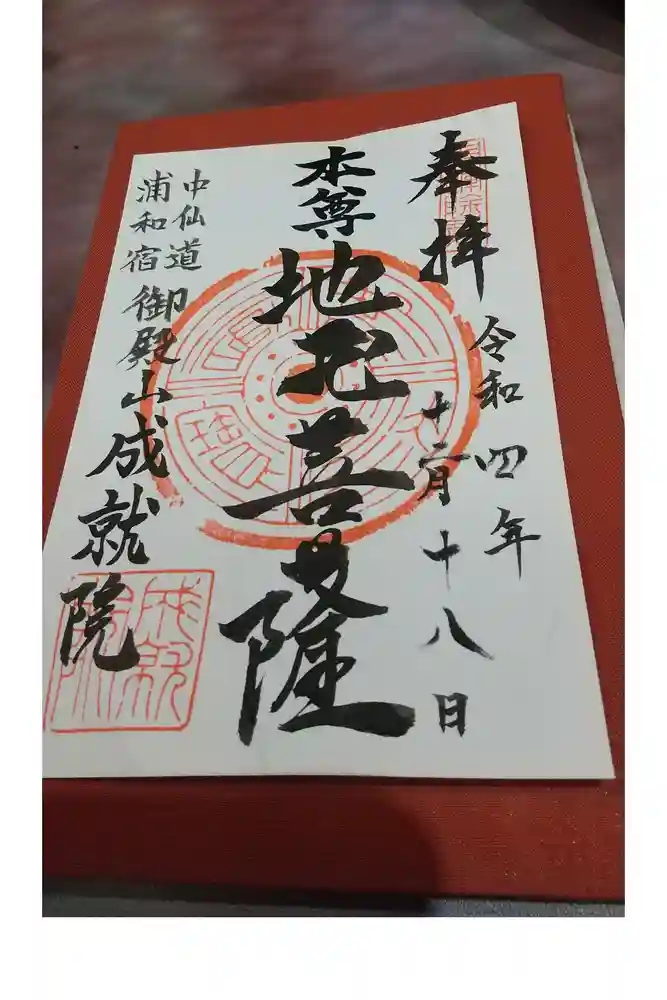 奉拝
令和四年
十二月十八日
本尊
地蔵菩薩
中仙道
浦和宿
御殿山成就院
成就院